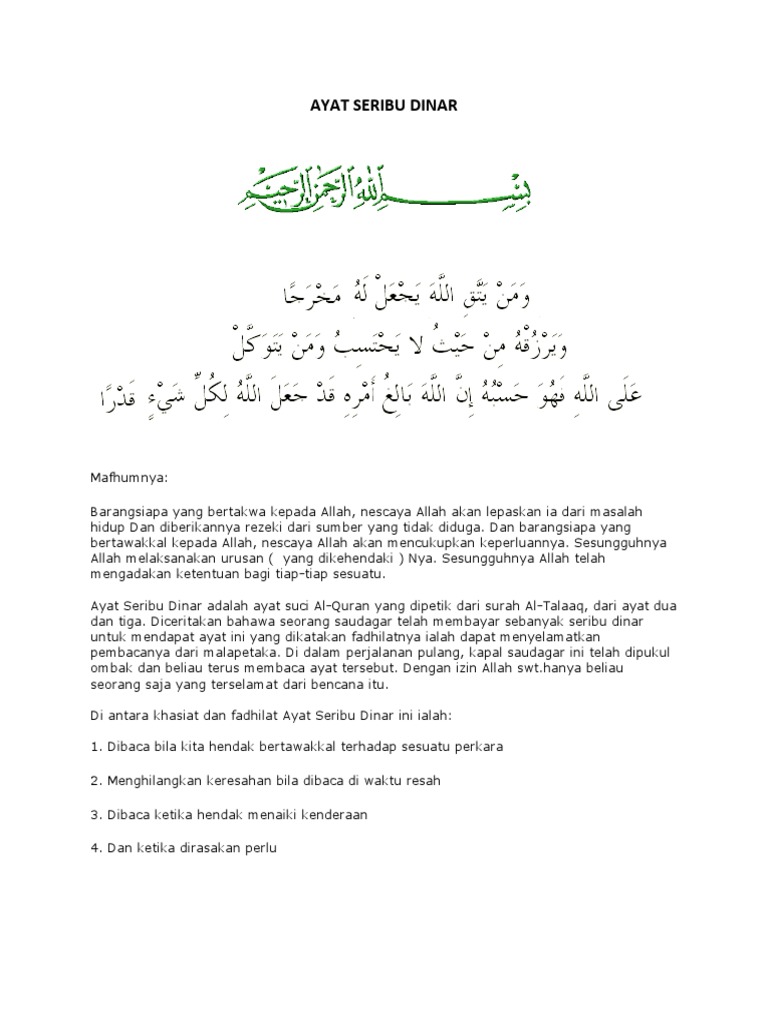 AYAT SERIBU DINAR
بِسْمِ اللهِ الرَّحْمٰنِ الرَّحِيْمِ
وَمَنْ يَتَّقِ اللَّهَ يَجْعَلْ لَهُ مَخْرَجًا
وَيَرْزُقْهُ مِنْ حَيْثُ لا يَحْتَسِبُ وَمَنْ يَتَوَكَّلْ
عَلَى اللَّهِ فَهُوَ حَسْبُهُ إِنَّ اللَّهَ بَالِغُ أَمْرِهِ قَدْ جَعَلَ اللَّهُ لِكُلِّ شَيْءٍ قَدْرًا
Mafhumnya:
Barangsiapa yang bertakwa kepada Allah, nescaya Allah akan lepaskan ia dari masalah
hidup Dan diberikannya rezeki dari sumber yang tidak diduga. Dan barangsiapa yang
bertawakkal kepada Allah, nescaya Allah akan mencukupkan keperluannya. Sesungguhnya
Allah melaksanakan urusan ( yang dikehendaki ) Nya. Sesungguhnya Allah telah
mengadakan ketentuan bagi tiap-tiap sesuatu.
Ayat Seribu Dinar adalah ayat suci Al-Quran yang dipetik dari surah Al-Talaaq, dari ayat dua
dan tiga. Diceritakan bahawa seorang saudagar telah membayar sebanyak seribu dinar
untuk mendapat ayat ini yang dikatakan fadhilatnya ialah dapat menyelamatkan
pembacanya dari malapetaka. Di dalam perjalanan pulang, kapal saudagar ini telah dipukul
ombak dan beliau terus membaca ayat tersebut. Dengan izin Allah swt.hanya beliau
seorang saja yang terselamat dari bencana itu.
Di antara khasiat dan fadhilat Ayat Seribu Dinar ini ialah:
1. Dibaca bila kita hendak bertawakkal terhadap sesuatu perkara
2. Menghilangkan keresahan bila dibaca di waktu resah
3. Dibaca ketika hendak menaiki kenderaan
4. Dan ketika dirasakan perlu